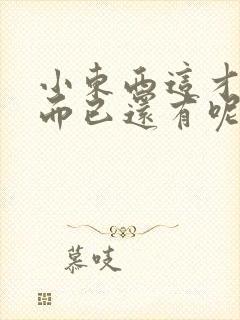 小東西這才
而已還有呢
慕吱